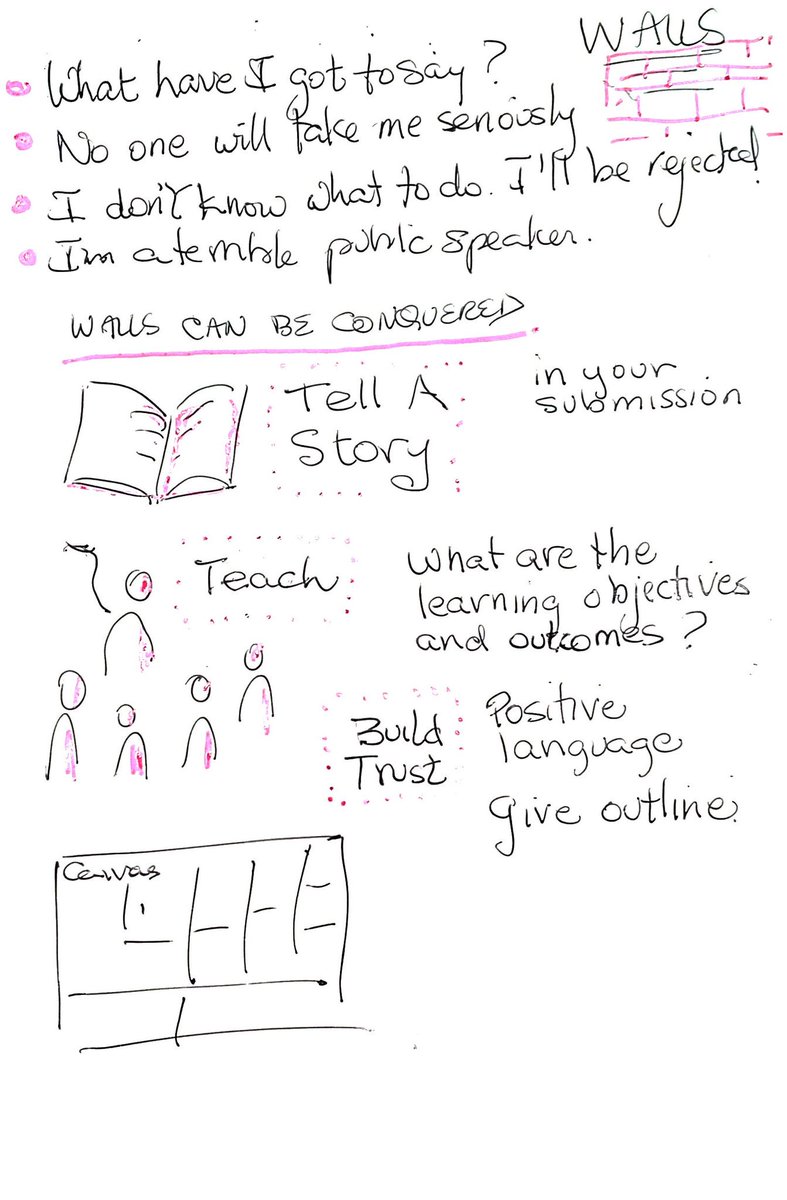 WALLS
What have I got to say?
No one will take me seriously
I don't know what to do. I'll be rejected!
I'm a terrible public speaker.
WALLS CAN BE CONQUERED
Tell A
Story
in your
submission
Teach
What are the
learning objectives
and outcomes?
Build
Trust
Positive
language
give outline.
Canvas